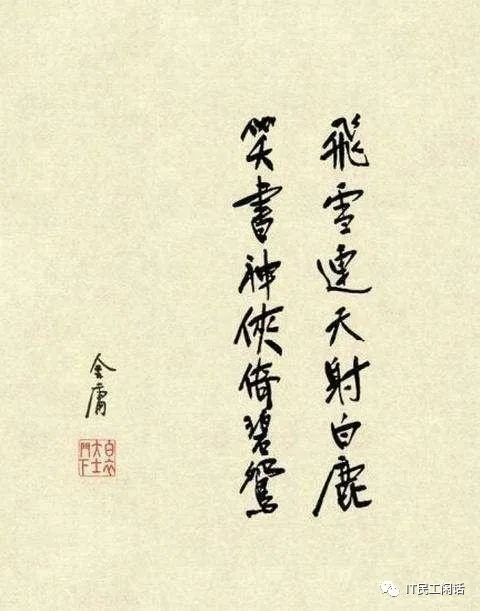 飛雪連天射白鹿
笑書神俠倚碧鴛
金庸
白衣大士門下
IT民工闲话